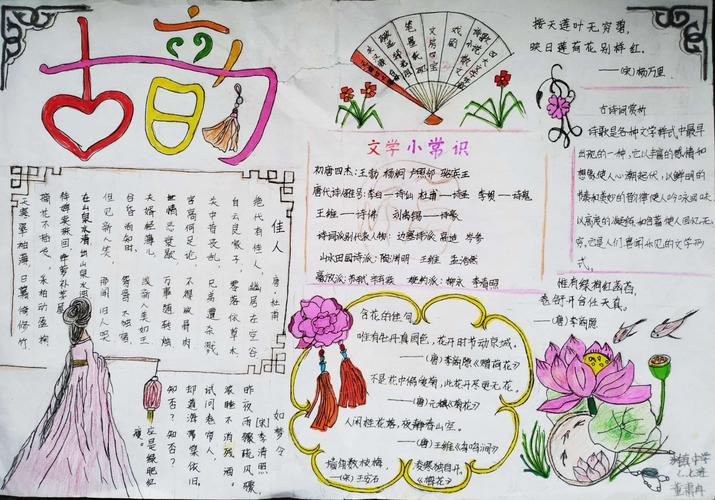 古韵
笔墨纸砚
文房四宝
戏剧
接天莲叶无穷碧,
映日莲荷花别样红。
——(宋)杨万里
古诗词赏析
诗歌是各种文学样式中最早
出现的一种,它以丰富的感情和
想象使人心潮起伏,以鲜明的
节奏和美妙的韵律使人吟咏回味,
以高度的凝练和含蓄使人回忆无
穷,它是人们喜闻乐见的文学形
式。
惟有绿荷红菡萏,
卷舒开合任天真。
——(唐)李商隐
文学小常识
初唐四杰:王勃 杨炯 卢照邻 骆宾王
唐代诗人雅号:李白——诗仙 杜甫——诗圣 李贺——诗鬼
王维——诗佛 刘禹锡——诗豪
诗词派别代表人物:边塞诗派:高适 岑参
山水田园诗派:陶渊明 王维 孟浩然
豪放派:苏轼 辛弃疾 婉约派:柳永 李清照
佳人
唐·杜甫
绝代有佳人,幽居在空谷
自云良家子,零落依草木
关中昔丧乱,兄弟遭杀戮
官高何足论,不得收骨肉
世情恶衰歇,万事随转烛
夫婿轻薄儿,新人美如玉
合昏尚知时,鸳鸯不独宿
但见新人笑,那闻旧人哭
在山泉水清,出山泉水浊
侍婢卖珠回,牵萝补茅屋
摘花不插发,采柏动盈掬
天寒翠袖薄,日暮倚修竹
如梦令
(宋)李清照
昨夜雨疏风骤,
浓睡不消残酒。
试问卷帘人,
却道海棠依旧。
知否?知否?
应是绿肥红
瘦。
含花的佳句
唯有牡丹真国色,花开时节动京城。
不是花中偏爱菊,此花开尽更无花。
——(唐)元稹《菊花》
人闲桂花落,夜静春山空。
——(唐)王维《鸟鸣涧》
墙角数枝梅,
凌寒独自开。
——(宋)王安石
《梅花》